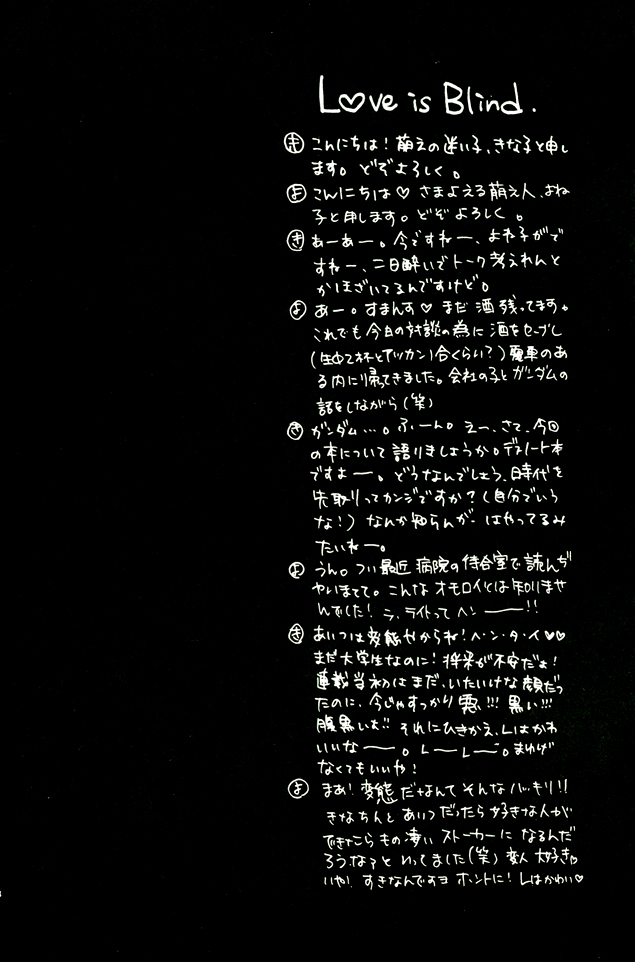 Love is Blind.
き こんにちは!萌えの迷い子、きな子と申し
ます。どぞよろしく。
よ こんにちは♡さまよえる萌え人、よね
子と申します。どぞよろしく。
き あーあー。今ですねー、よね子がで
すねー、二日酔いでトーク考えれんと
かほざいてるんですけど。
よ あー。すまんす♡まだ酒残ってます。
これでも今日の対談の為に酒をセーブし
(生中2杯とアツカン1合くらい?)電車のあ
る内に帰ってきました。会社の子とガンダムの
話をしながら(笑)
き ガンダム…。ふーん。えー、さて、今回
の本について語りましょうか。デスノート本
ですよー。どうなんでしょう、時代を
先取りってカンジですか?(自分でいう
な!)なんか知らんが、はやってるみ
たいねー。
よ うん。つい最近病院の待合室で読んぢ
ゃいまして。こんなオモロイとは知りませ
んでした!ラ、ライトってヘンーー!!
き あいつは変態やからね!ヘ・ン・タ・イ♡♡
まだ大学生なのに!将来が不安だよ!
連載当初はまだ、いたいけな顔だっ
たのに、今じゃすっかり悪い!!!黒い!!!
腹黒いよ!!それにひきかえ、Lはかわ
いいなーー。LーLー。まゆげ
なくてもいいや!
よ まあ!変態だなんてそんなバッキリ!!
きなちんとあいつだったら好きな人が
できたらもの凄いストーカーになるんだ
ろうなぁといってました(笑)変人大好き♡
いや!すきなんですヨホントに!Lはかわいい♡